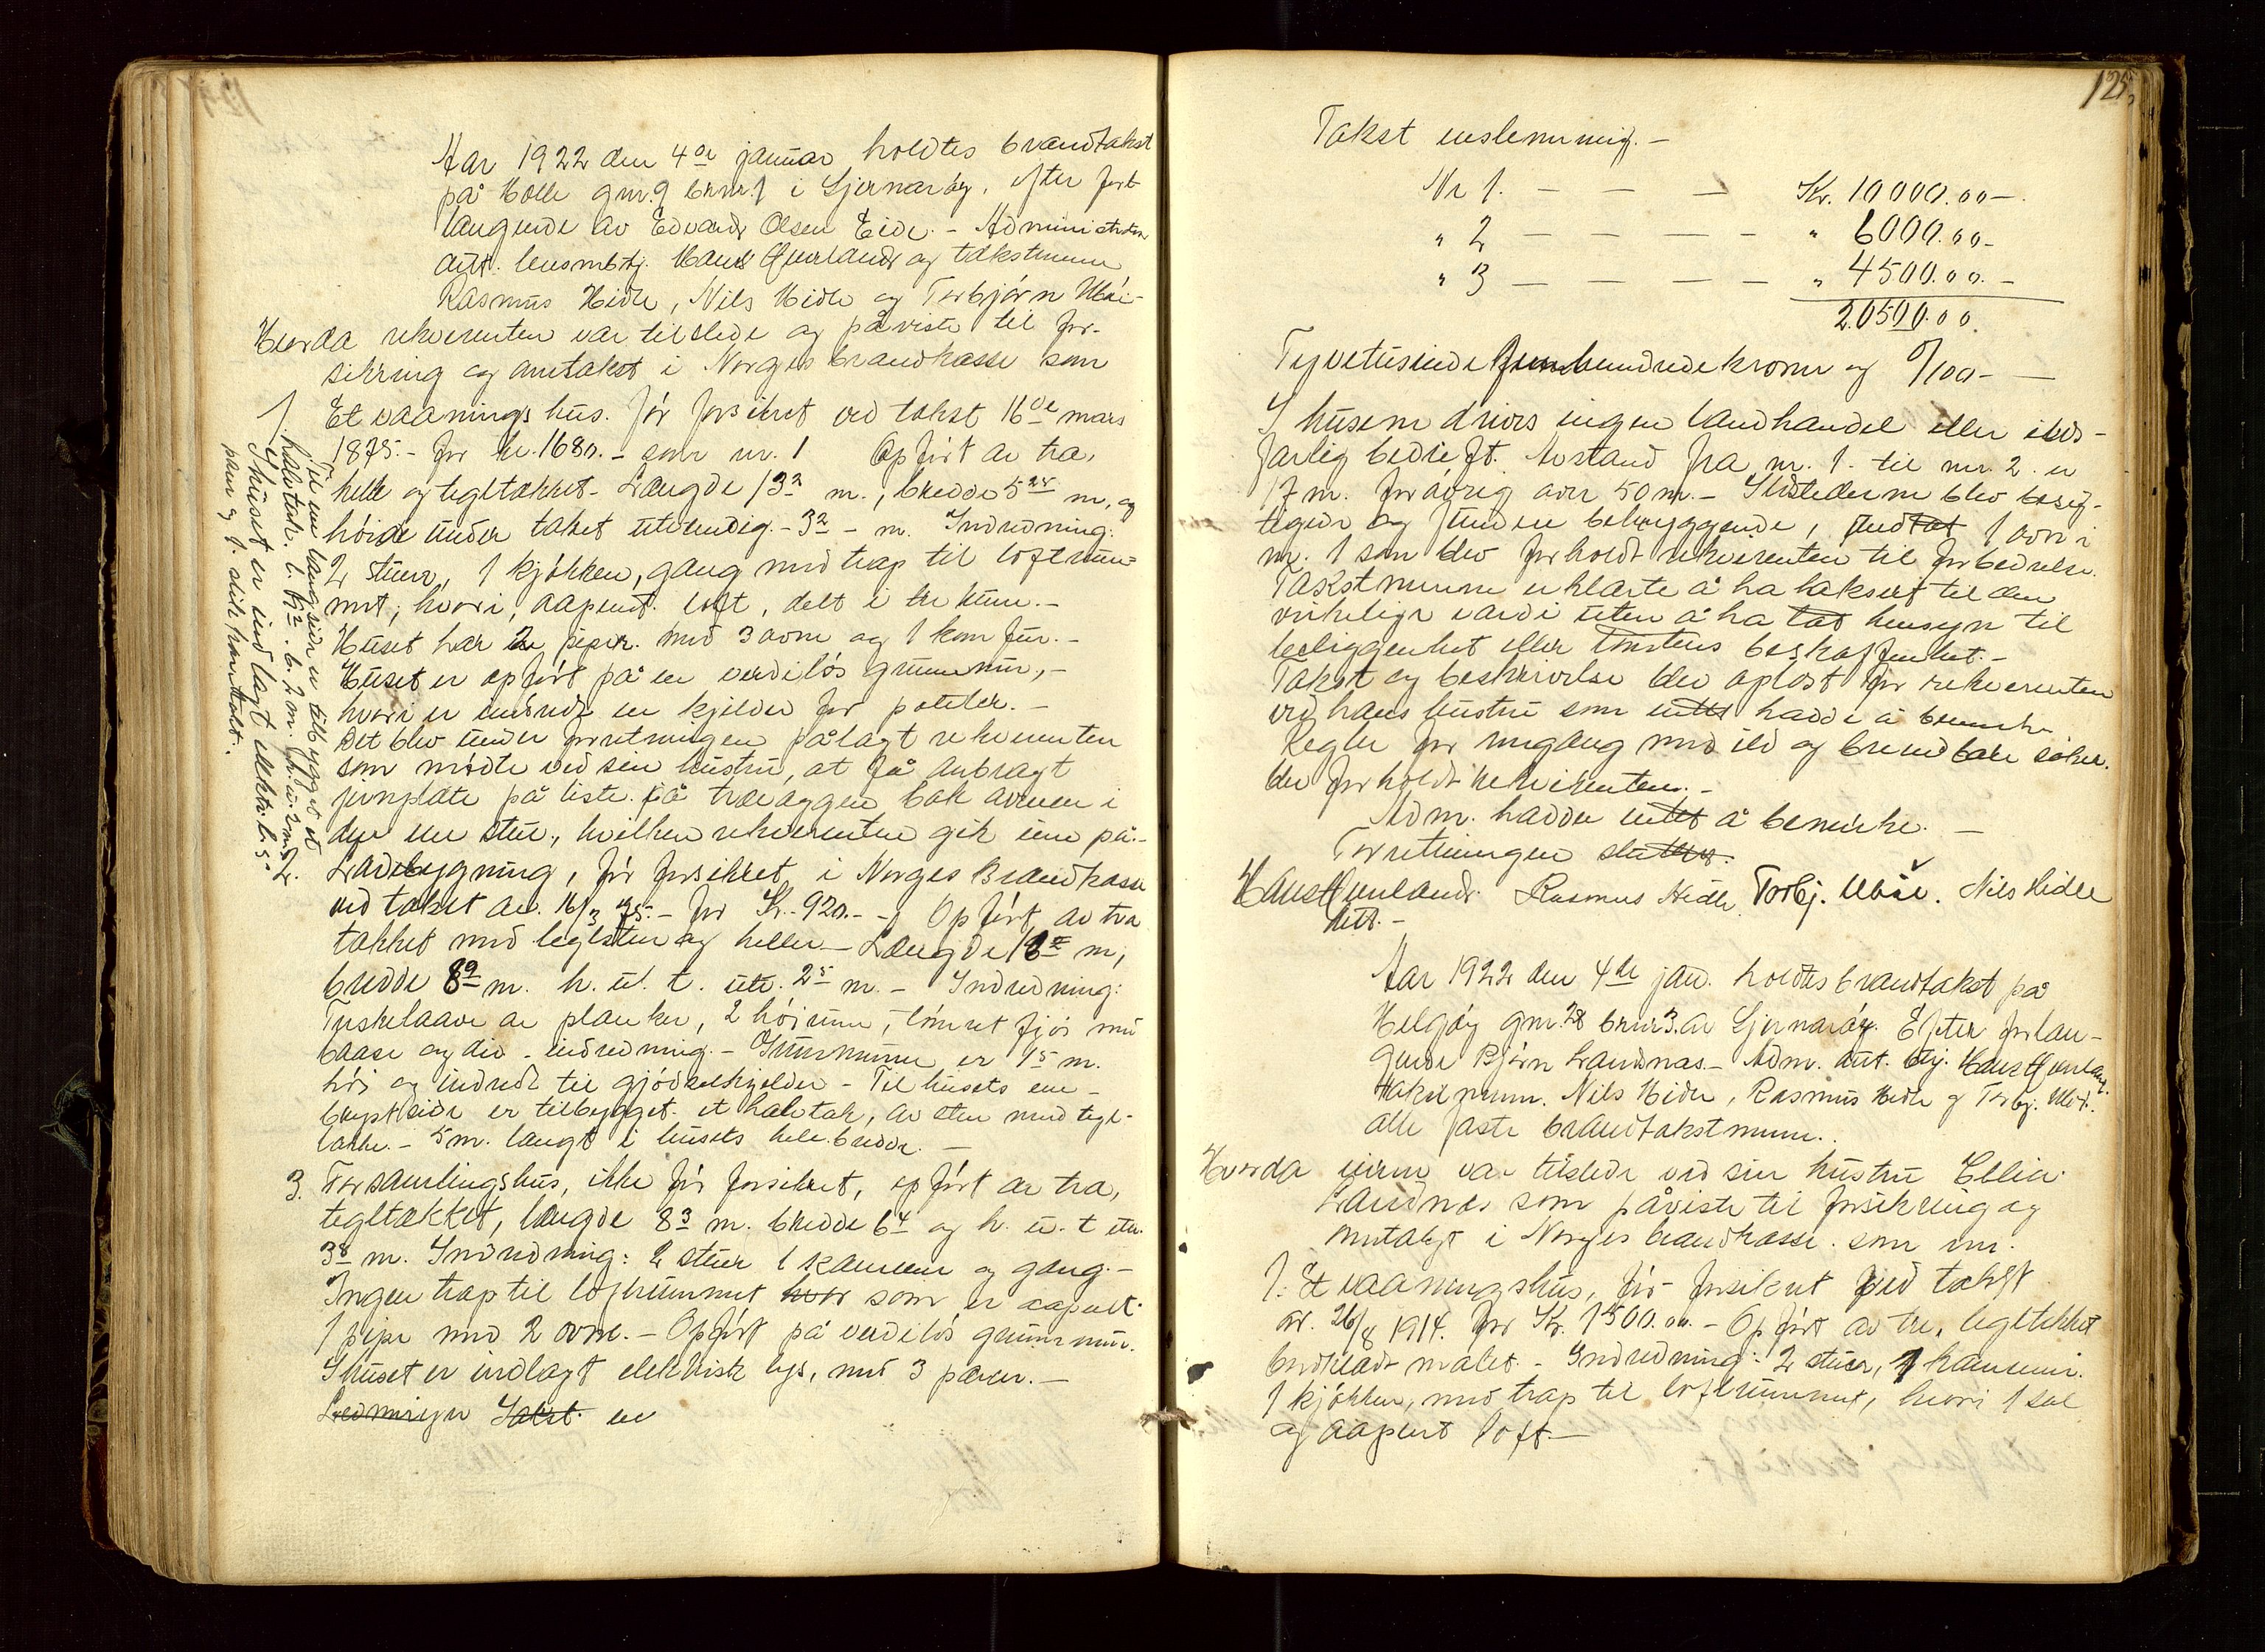 Aar 1922 den 4de januar holdtes brandtakst
på Holle gnr. 9 brnr. 1 i Sjernarøy, efter for-
langende av Edvard Olsen Eide. - Administrator
aut. lensmbtj. Hans Hunland og takstmenn
Rasmus Hidle, Nils Hidle og Torbjørn Ubøe-
Hvorda rekverenten var tilstede og påviste til for-
sikring og omtakst i Norges brandkasse som
1. Et vaaningshus. før forsikret ved takst 16de mars
1875.- for kr. 1680.- som nr. 1 Opført av træ,
helle og tegltækket. Længde 13² m., bredde 5²⁵ m, og
høide under taket utvendig.- 3² - m. Indredning:
2 stuer, 1 kjøkken, gang med trap til loftrum-
met, hvori, aapent loft, delt i tre rum.-
Huset har 2 piper med 3 ovne og 1 komfur.-
Huset er opført på en verdiløs grunnmur,-
hvori er indredt en kjelder for poteter.-
Det blev under forretningen pålagt rekverenten
som mødte ved sin hustru, at få anbragt
jernplate på liste på trævæggen bak ovnen i
den ene stue, hvilken rekverenten gik inn på.-
2. Ladebygning, før forsikret i Norges Brandkasse
ved takst av. 16/3 75.- for Kr.- 920.- - Opført av træ
takket med teglsten og heller - Længde 18 m,
bredde 8⁹ m. h. u. t. utv. 2⁵ m. - Indredning:
Treskelaave av planker, 2 høirum, tømret fjøs med
baase og div. indredning.- Grunnmuren er 1⁵ m.
høi og indredt til gjødselkjelder - Til husets ene
brystside er tilbygget et halvtak, av sten med tegl-
takke.- 5 m. langt i husets hele bredde. -
3. Forsamlingshus, ikke før forsikret, opført av træ,
tegltækket, længde 8³ m. bredde 6⁴ og h. u. t utv.
3⁸ m. Indredning: 2 stuer 1 kammer og gang.-
Ingen trap til loftrummet hvor som er aapent.
1 pipe med 2 ovne. - Opført på verdiløs grunnmur.
I huset er indlagt elektrisk lys, med 3 pærer.-
Takst en
Til ene langside er tilbygget et
halvtak. l. 6². b. 2 m. h. u. 2 m
I huset er indlagt elektr. l. 5
pærer og 1. stikkontakt.
125.
Takst enstemmig. -
Nr 1. - - - Kr. 10000.00-.
" 2 - - - - " 6000.00-
" 3 - - - - " 4500.00.-
20500.00.
Tyvetusinde femhundrede kroner og 0/100- -
I husene drives ingen landhandel eller ilds-
farlig bedrift. Avstand fra nr. 1. til nr. 2. er
17 m. forøvrig over 50 m. - Ildstederne blev besig-
tiget og funden betryggende, undtat 1 ovn i
nr. 1 som blev forholdt rekverenten til forbedrelse.
Takstmenne erklærte å ha taksert til den
virkelige værdi uten å ha tat hensyn til
beliggenhet eller tomtens beskaffenhet.-
Takst og beskrivelse blev oplæst for rekverenten
ved hans hustru som intet hadde å bemerke
Regler for omgang med ild og brendbare saker.
blev forholdt rekvirenten.-
Adm. hadde intet å bemerke. -
Forretningen sluttet.
Hans Hunland. Rasmus Hidle. Torbj. Ubøe. Nils Hidle
aut. -
Aar 1922 den 4de jan. holdtes brandtakst på
Helgøy gnr. 28 brnr 3. av Sjernarøy. Efter forlan-
gende Bjørn Landnæs.- Adm. aut. btj. Hans Hunland.
Takstmenn. Nils Hidle, Rasmus Hidle og Torbj. Ubøe.
alle faste brandtakstmenn.
Hvorda eieren var tilstede ved sin hustru
Landnæs som påviste til forsikring og
omtakst i Norges brandkasse. som nr.
1. Et vaaningshus, før forsikret ved takst
av. 26/8 1914. for Kr. 1500.00.- Opført av træ, tegltekket
bordkledt malet.- Indredning: 2 stuer, 1 kammer.
1 kjøkken, med trap til loftrummet, hvori 1 sal
og aapent loft.-